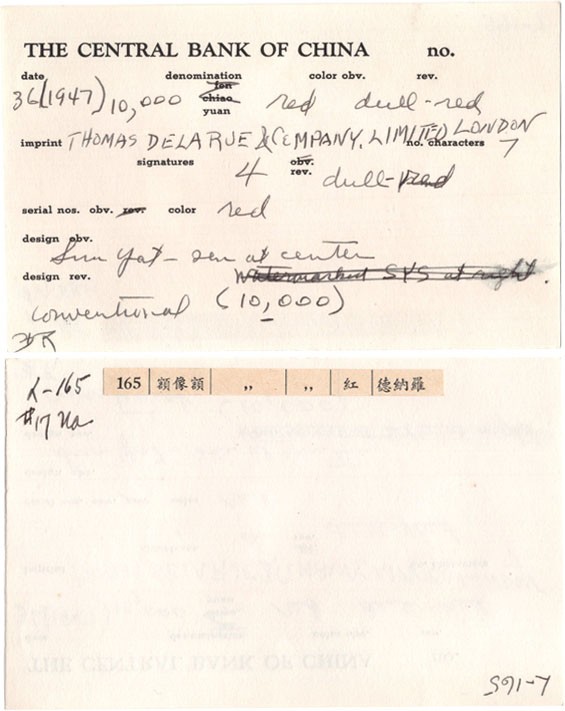 THE CENTRAL BANK OF CHINA no.
date denomination color obv. rev.
fen
chiao
36(1947) 10,000 yuan red dull-red
imprint THOMAS DELARUE & COMPANY, LIMITED LONDON
no. characters 7
signatures 4 obv.
rev. dull-red
serial nos. obv. rev. color red
design obv.
Sun Yat-sen at center
design rev. Watermarked SYS at right.
conventional (10,000)
L-165 165 額像額 ,, ,, 紅 德納羅
#17 Na
S91-7